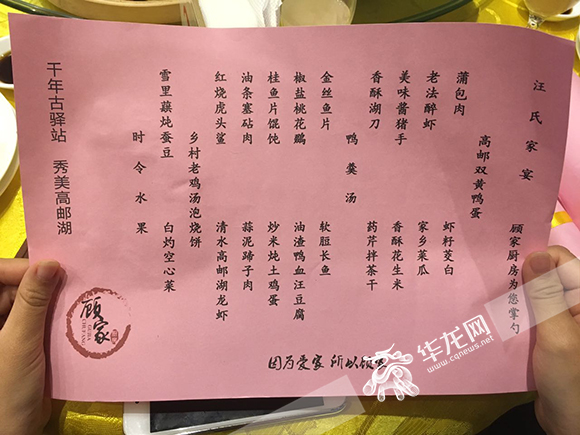 汪氏家宴
顾家厨房为您掌勺
高邮双黄鸭蛋
蒲包肉
虾籽茭白
老法醉虾
家乡菜瓜
美味酱猪手
香酥花生米
香酥湖刀
药芹拌茶干
鸭羹汤
金丝鱼片
软脰长鱼
椒盐桃花鵽
油渣鸭血汪豆腐
桂鱼片馄饨
炒米炖土鸡蛋
油条塞砧肉
蒜泥蹄子肉
红烧虎头鲨
清水高邮湖龙虾
乡村老鸡汤泡烧饼
雪里蕻炖蚕豆
白灼空心菜
时令水果
千年古驿站 秀美高邮湖
顾家
GU JIA
CHU FANG
因为爱家 所以顾家
华龙网
www.cqnews.net